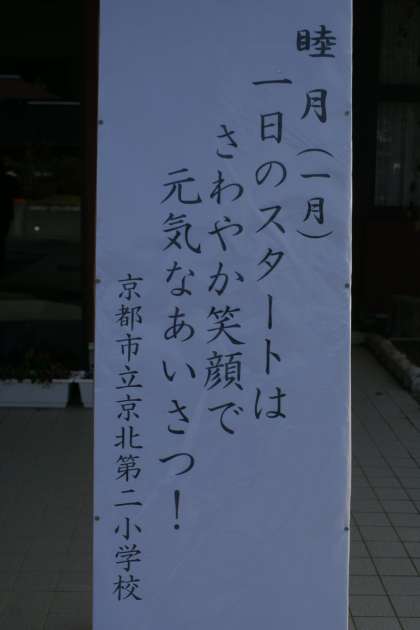 睦月(一月)
一日のスタートは
さわやか笑顔で
元気なあいさつ!
京都市立京北第二小学校